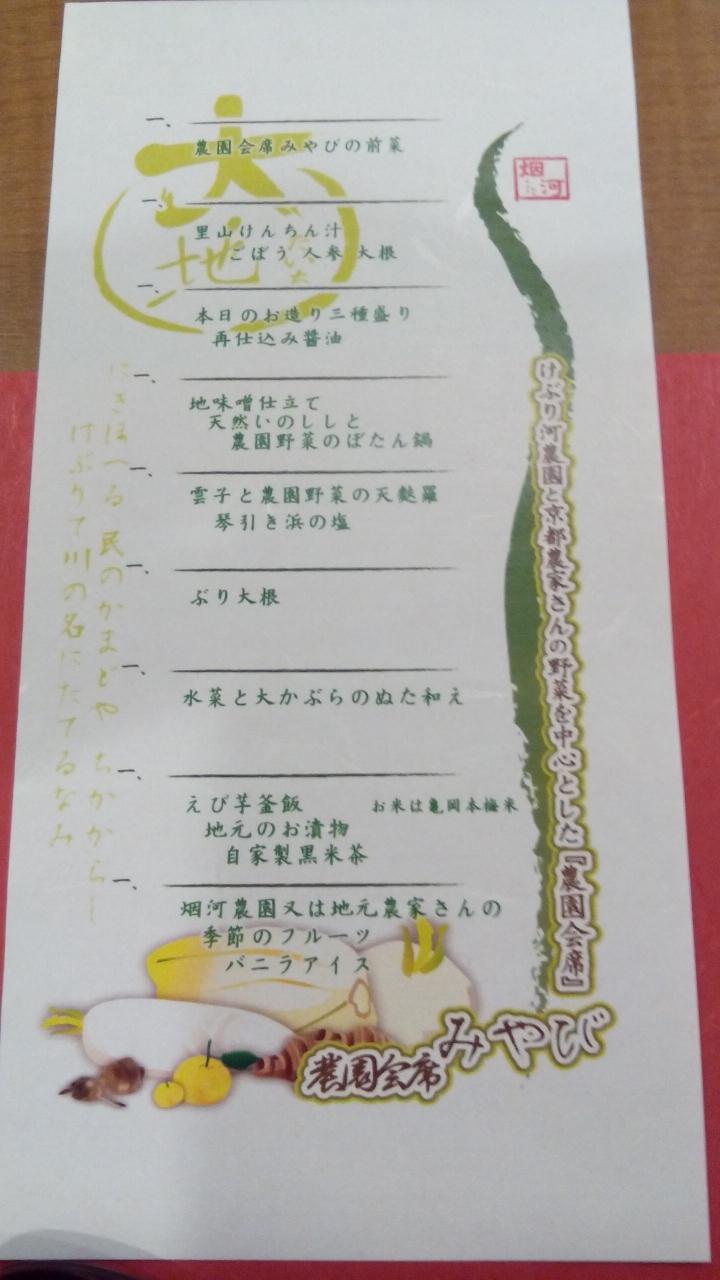 一、
農園会席みやびの前菜
一、
里山けんちん汁
ごぼう 人参 大根
一、
本日のお造り三種盛り
再仕込み醤油
一、
地味噌仕立て
天然いのししと
農園野菜のぼたん鍋
一、
雲子と農園野菜の天麩羅
琴引き浜の塩
一、
ぶり大根
一、
水菜と大かぶらのぬた和え
一、
えび芋釜飯 お米は亀岡本梅米
地元のお漬物
自家製黒米茶
一、
烟河農園又は地元農家さんの
季節のフルーツ
バニラアイス
大地
烟河
けぶり河農園と京都農家さんの野菜を中心とした『農園会席』
農園会席みやび
にきはへる 民のかまどや ちかからし
けぶりて川の名にたてるなみ